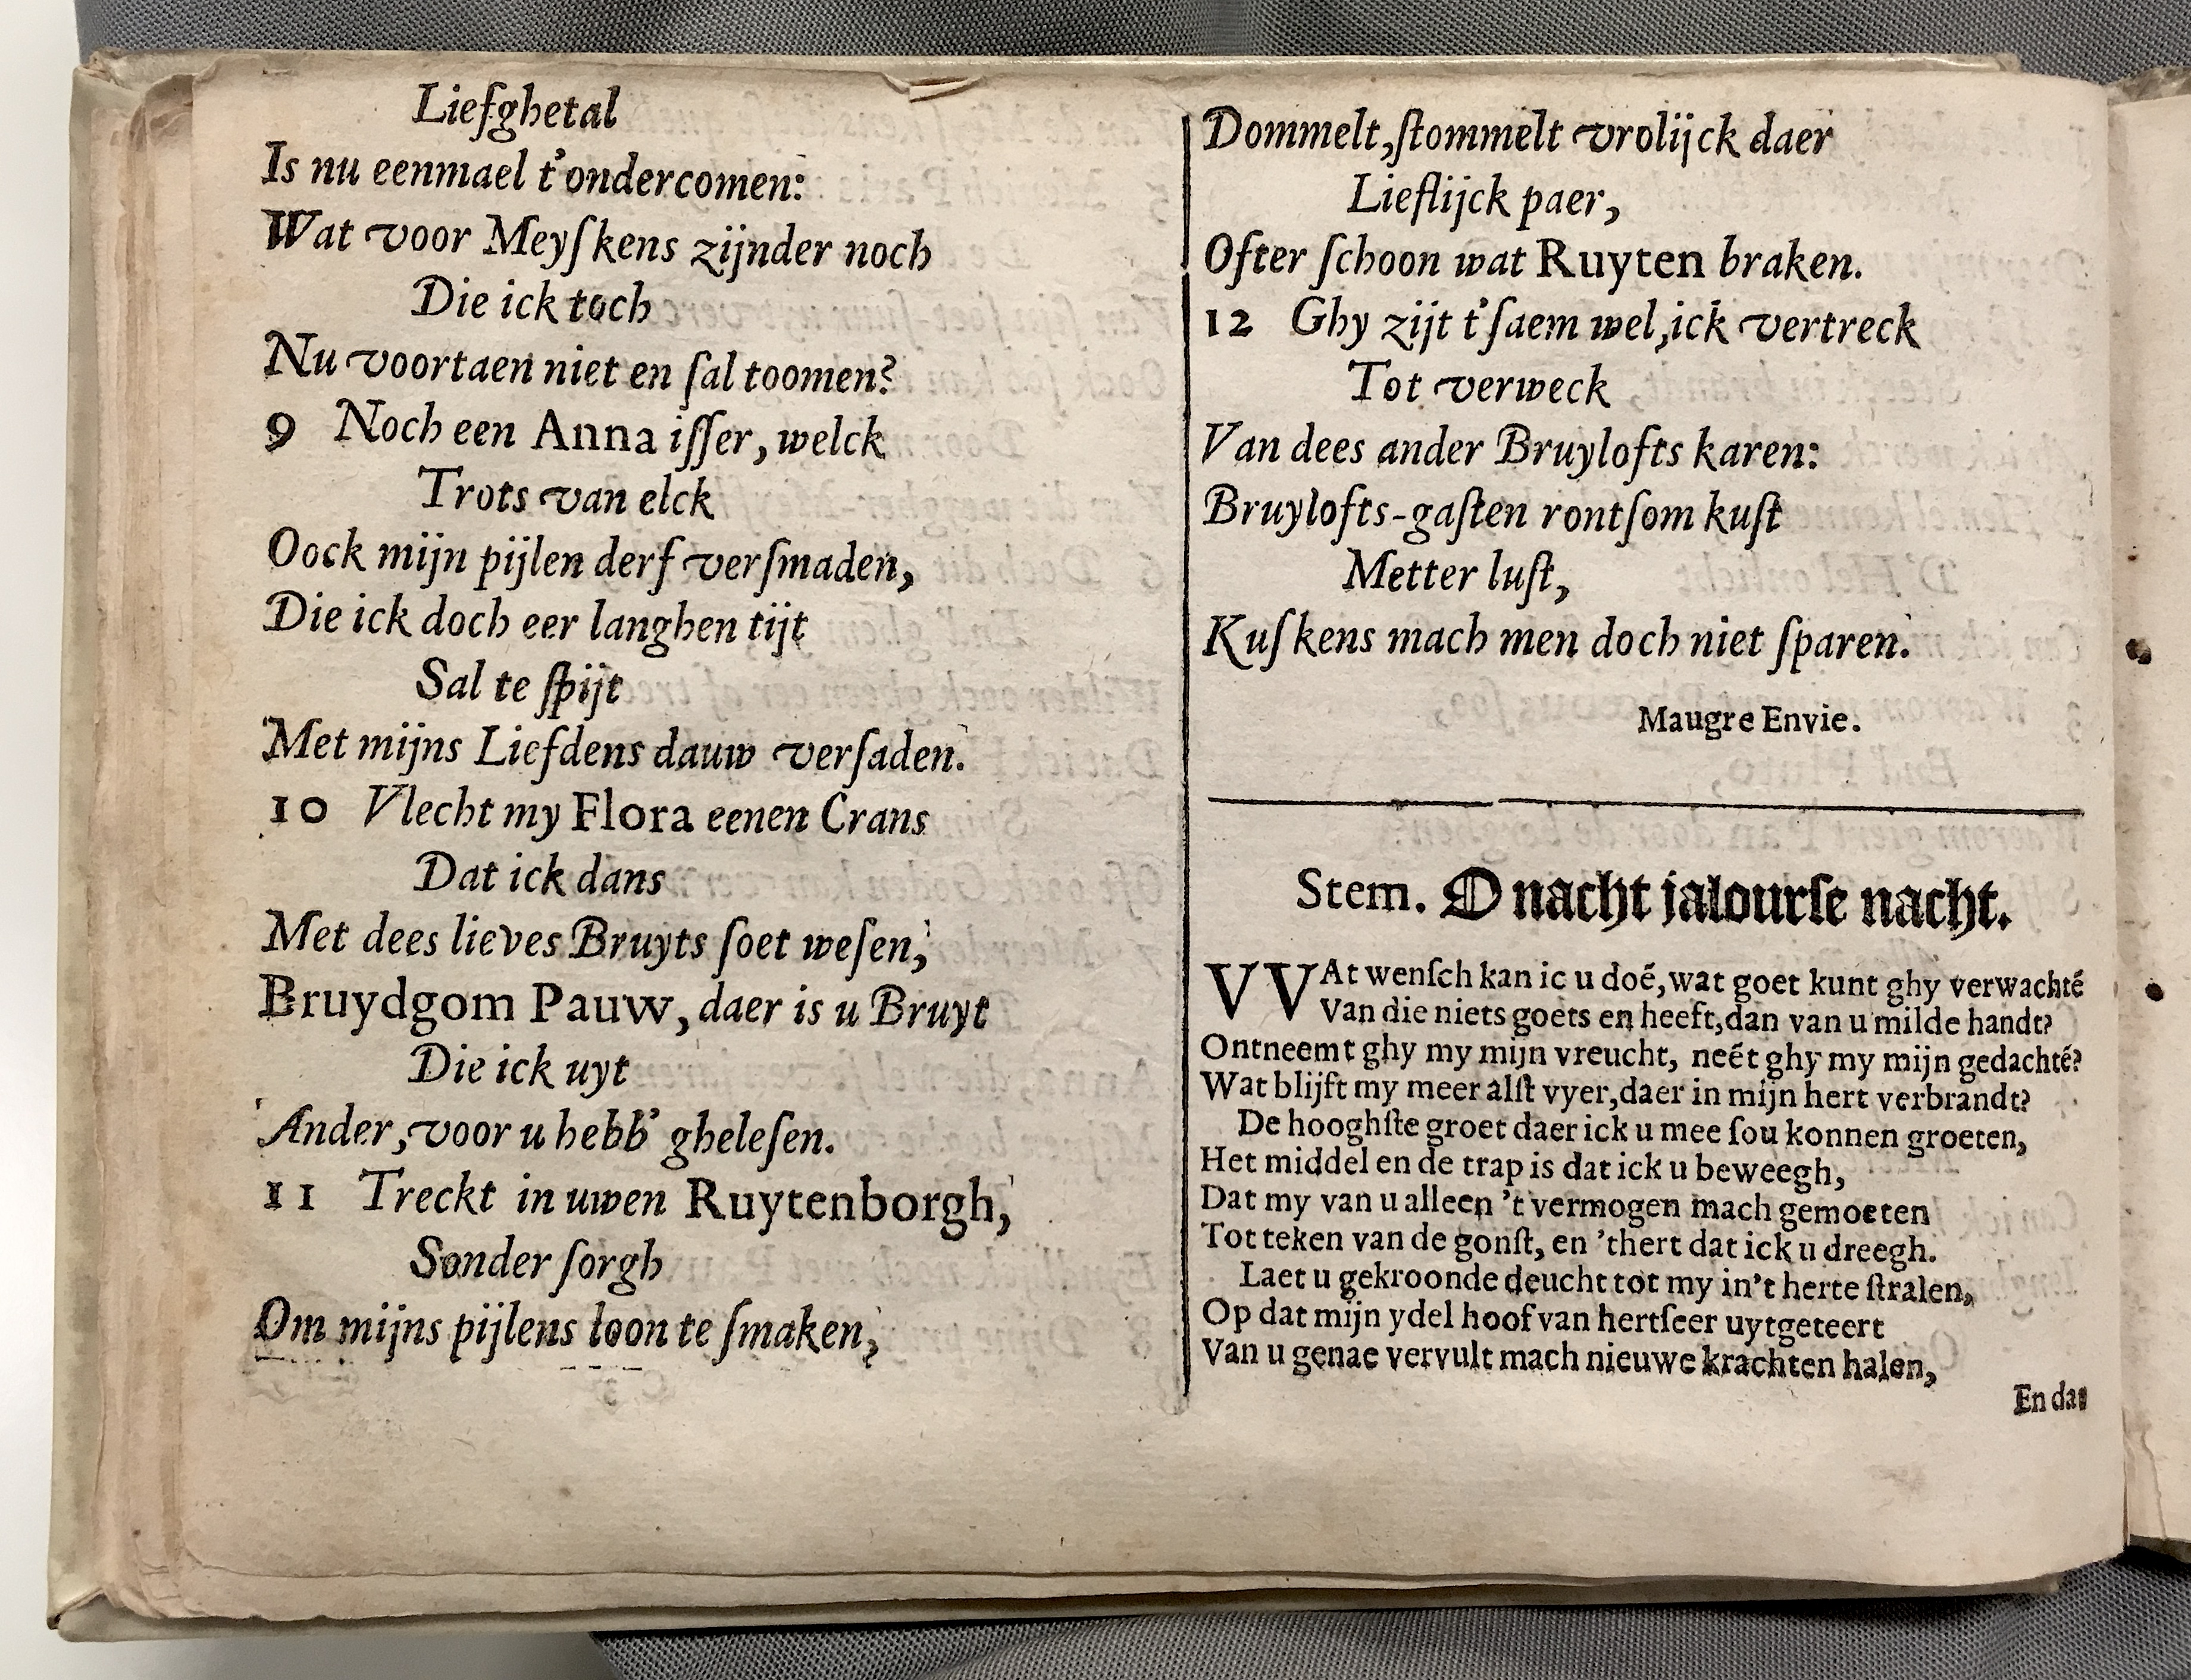 Liefghetal
Is nu eenmael t'ondercomen:
Wat voor Meyſkens zijnder noch
Die ick toch
Nu voortaen niet en ſal toomen?
9 Noch een Anna iſſer, welck
Trots van elck
Oock mijn pijlen derf verſmaden,
Die ick doch eer langhen tijt
Sal te ſpijt
Met mijns Liefdens dauw verſaden.
10 Vlecht my Flora eenen Crans
Dat ick dans
Met dees lieves Bruyts ſoet weſen,
Bruydgom Pauw, daer is u Bruyt
Die ick uyt
Ander, voor u hebb' gheleſen.
11 Treckt in uwen Ruytenborgh,
Sonder ſorgh
Om mijns pijlens loon te ſmaken,
Dommelt, ſtommelt vrolijck daer
Lieflijck paer,
Ofter ſchoon wat Ruyten braken.
12 Ghy zijt t'ſaem wel, ick vertreck
Tot verweck
Van dees ander Bruylofts karen:
Bruylofts-gaſten rontſom kuſt
Metter luſt,
Kuſkens mach men doch niet ſparen.
Maugre Envie.
Stem. O nacht jalourſe nacht.
VVAt wenſch kan ic u doẽ, wat goet kunt ghy verwachtẽ
Van die niets goets en heeft, dan van u milde handt?
Ontneemt ghy my mijn vreucht, neẽt ghy my mijn gedachtẽ?
Wat blijft my meer alſt vyer, daer in mijn hert verbrandt?
De hooghſte groet daer ick u mee ſou konnen groeten,
Het middel en de trap is dat ick u beweegh,
Dat my van u alleen 't vermogen mach gemoeten
Tot teken van de gonſt, en 'thert dat ick u dreegh.
Laet u gekroonde deucht tot my in't herte ſtralen,
Op dat mijn ydel hoof van hertſeer uytgeteert
Van u genae vervult mach nieuwe krachten halen,
En dat